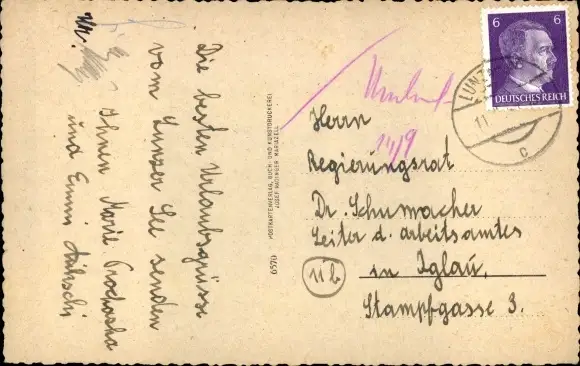 Die besten Urlaubsgrüsse
vom Lunzer See senden
Ihnen Marie Prochaska
und Emmi
POSTKARTENVERLAG, BUCH- UND KUNSTDRUCKEREI
JOSEF WAGINGER MARIAZELL
6570
6 6
DEUTSCHES REICH
LUNZ
11
c
14/9
Herrn
Regierungsrat
Dr. Schumacher
Leiter d. Arbeitsamtes
in Iglau,
11b
Stampfgasse 3.